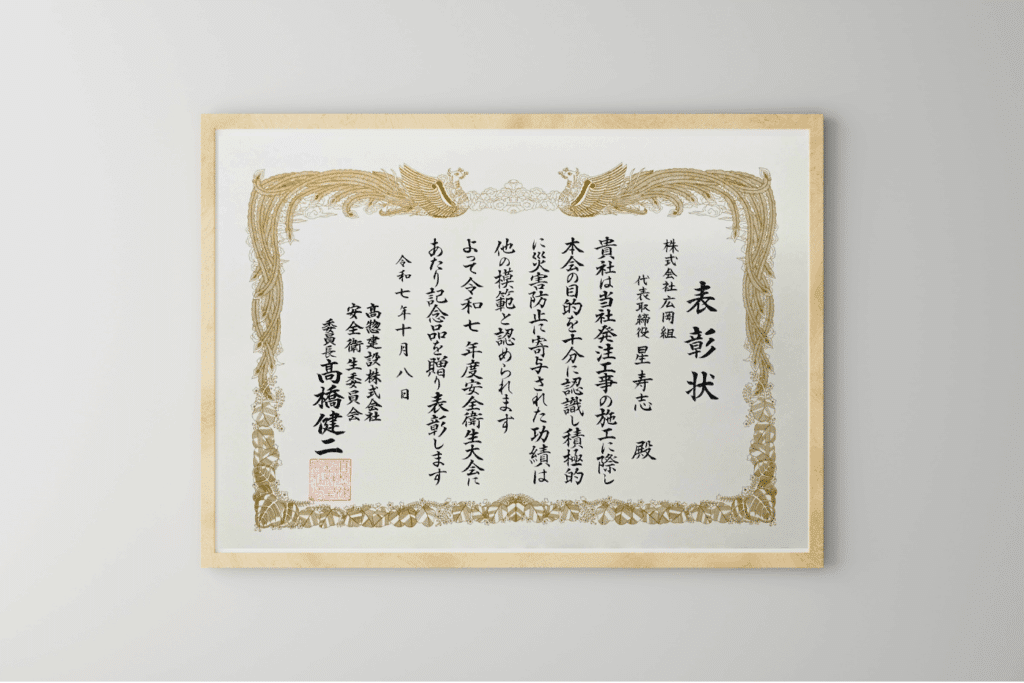 表彰状
株式会社広岡組
代表取締役 星寿志 殿
貴社は当社発注工事の施工に際し
本会の目的を十分に認識し積極的
に災害防止に寄与された功績は
他の模範と認められます
よって令和七年度安全衛生大会に
あたり記念品を贈り表彰します
令和七年十月八日
髙惣建設株式会社
安全衛生委員会
委員長 髙橋健二